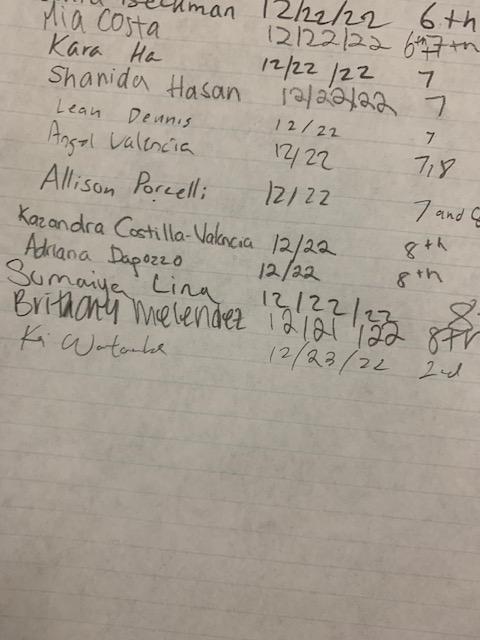 Beckman 12/22/22 6th
Mia Costa 12/22/22 6th 7th
Kara Ha 12/22/22 7
Shanida Hasan 12/22/22 7
Lean Dennis 12/22 7
Angel Valencia 12/22 7,8
Allison Porcelli 12/22 7 and 8
Kazandra Costilla-Valencia 12/22 8th
Adriana Dapozzo 12/22 8th
Sumaiya Lina 12/22/22 8
Brithany Melendez 12/21/22 8th
12/23/22 2nd